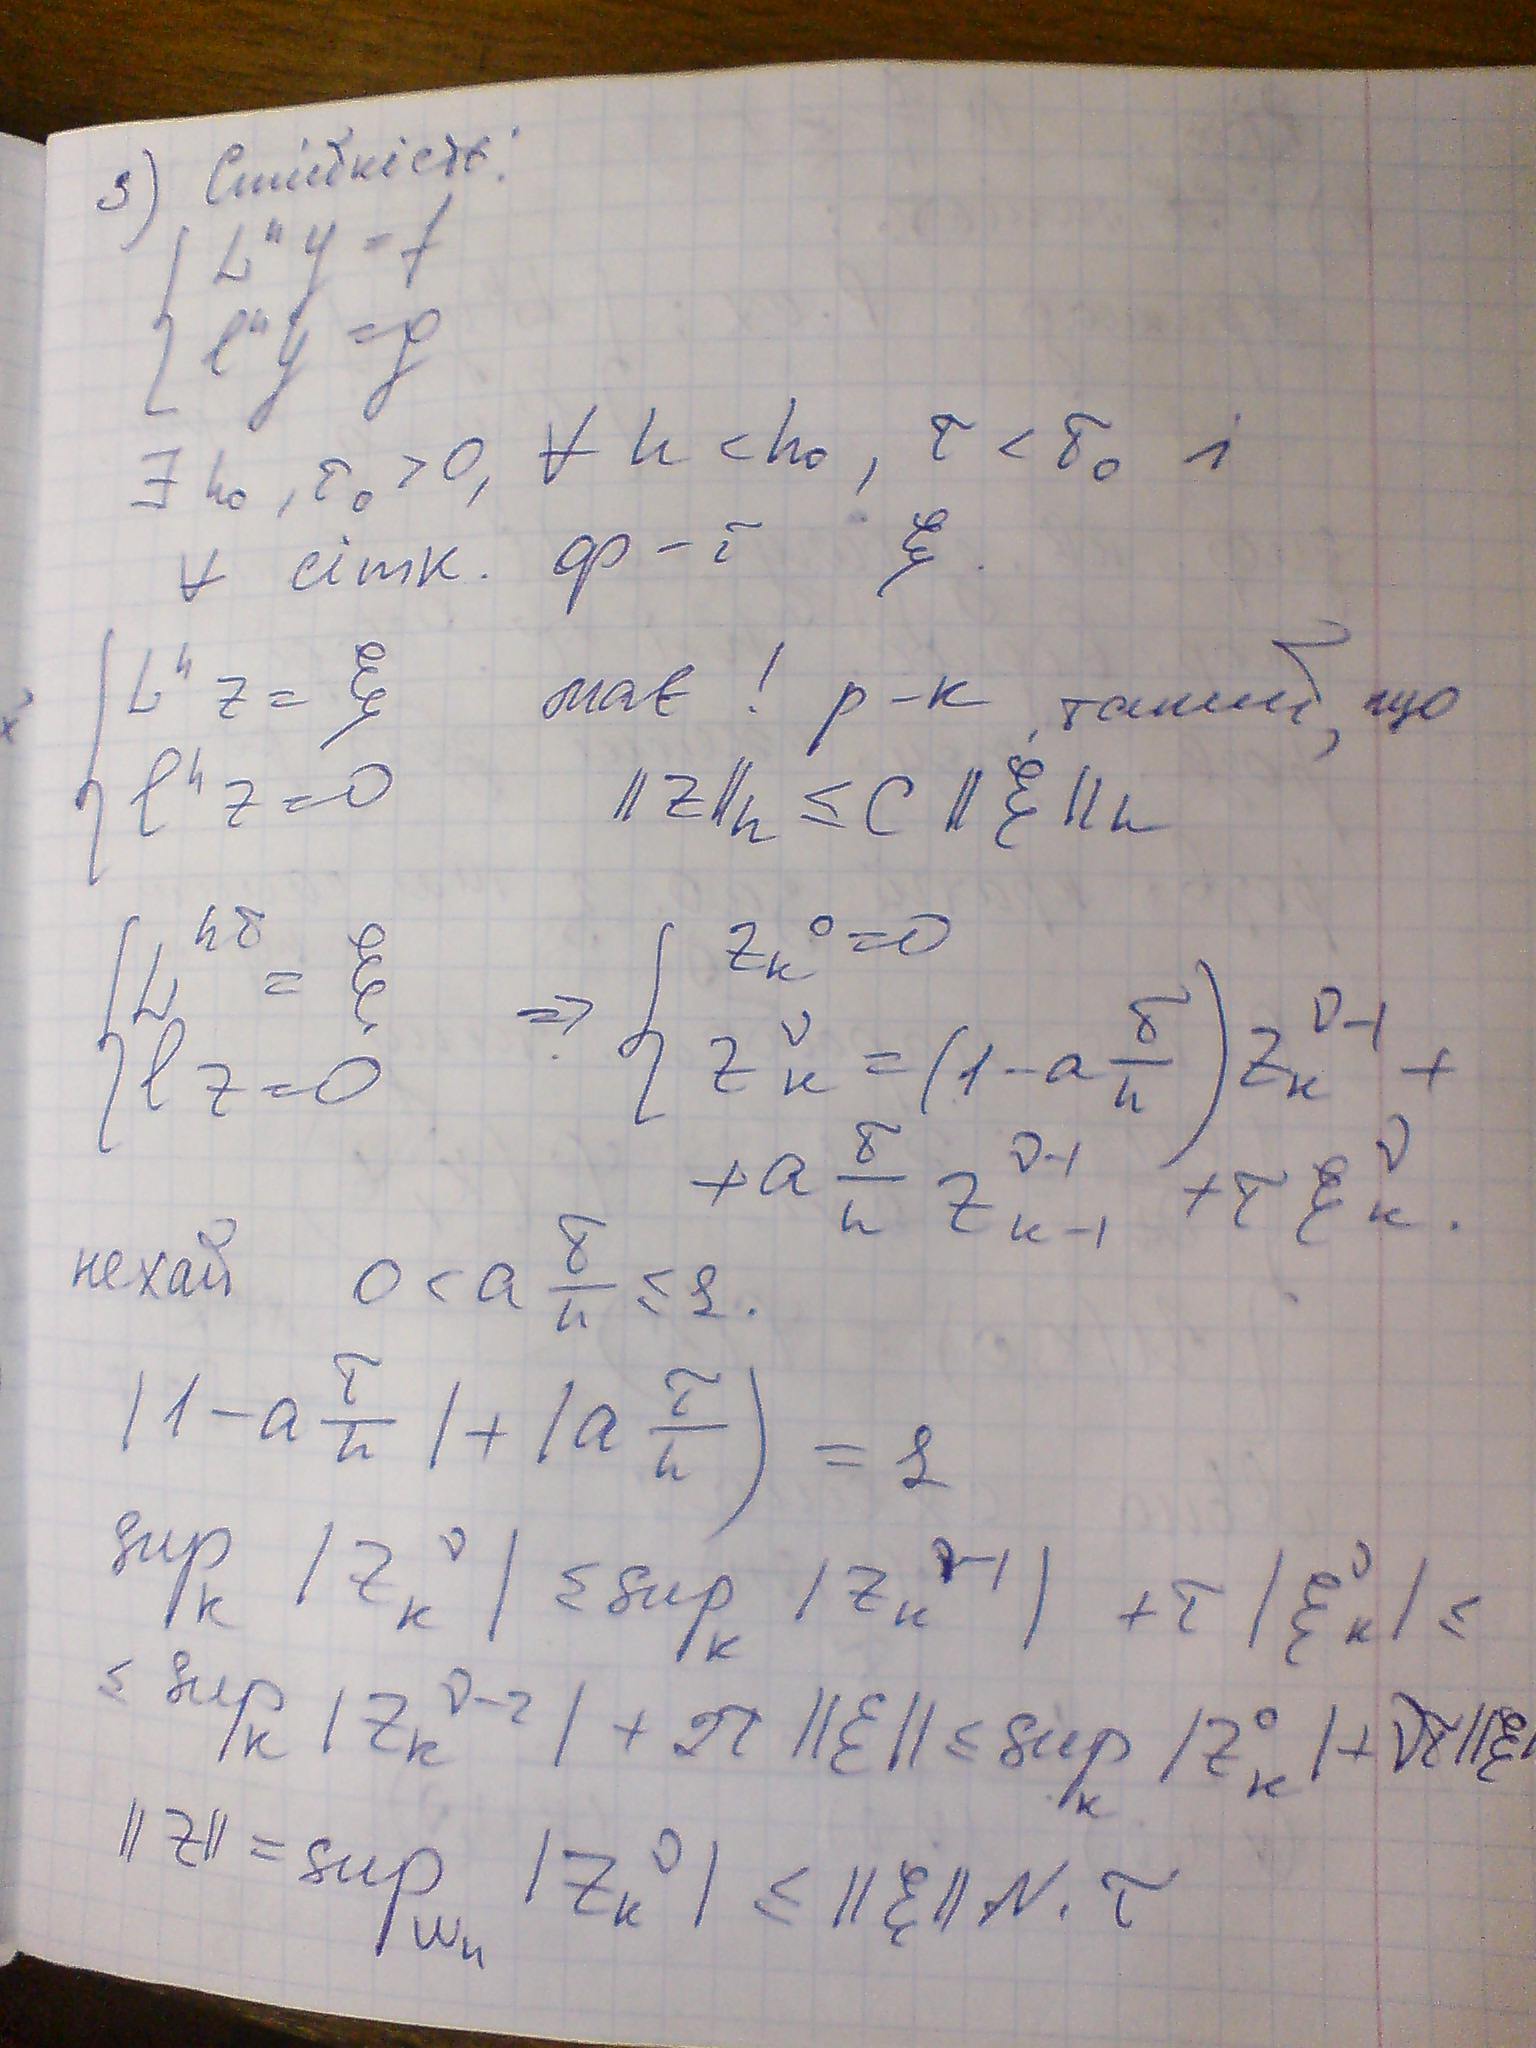 3) Стійкість:
{ Lʰy = f
{ lʰy = g
∃ h₀, τ₀ > 0, ∀ h < h₀, τ < τ₀ і
∀ сітк. ф-ї ξ.
{ Lʰ z = ξ має ! р-к, такий, що
{ lʰ z = 0 ‖z‖ₕ ≤ C ‖ξ‖ₕ
{ L^{hτ} = ξ ⇒ { z_k^0 = 0
{ l z = 0 { z_k^ν = (1 - a τ/h) z_k^{ν-1} +
+ a τ/h z_{k-1}^{ν-1} + τ ξ_k^ν.
нехай 0 < a τ/h ≤ 1.
|1 - a τ/h| + |a τ/h) = 1
sup_k |z_k^ν| ≤ sup_k |z_k^{ν-1}| + τ |ξ_k^ν| ≤
≤ sup_k |z_k^{ν-2}| + 2τ ‖ξ‖ ≤ sup_k |z_k^0| + ντ‖ξ‖
‖z‖ = sup_{ω_h} |z_k^ν| ≤ ‖ξ‖ N · τ